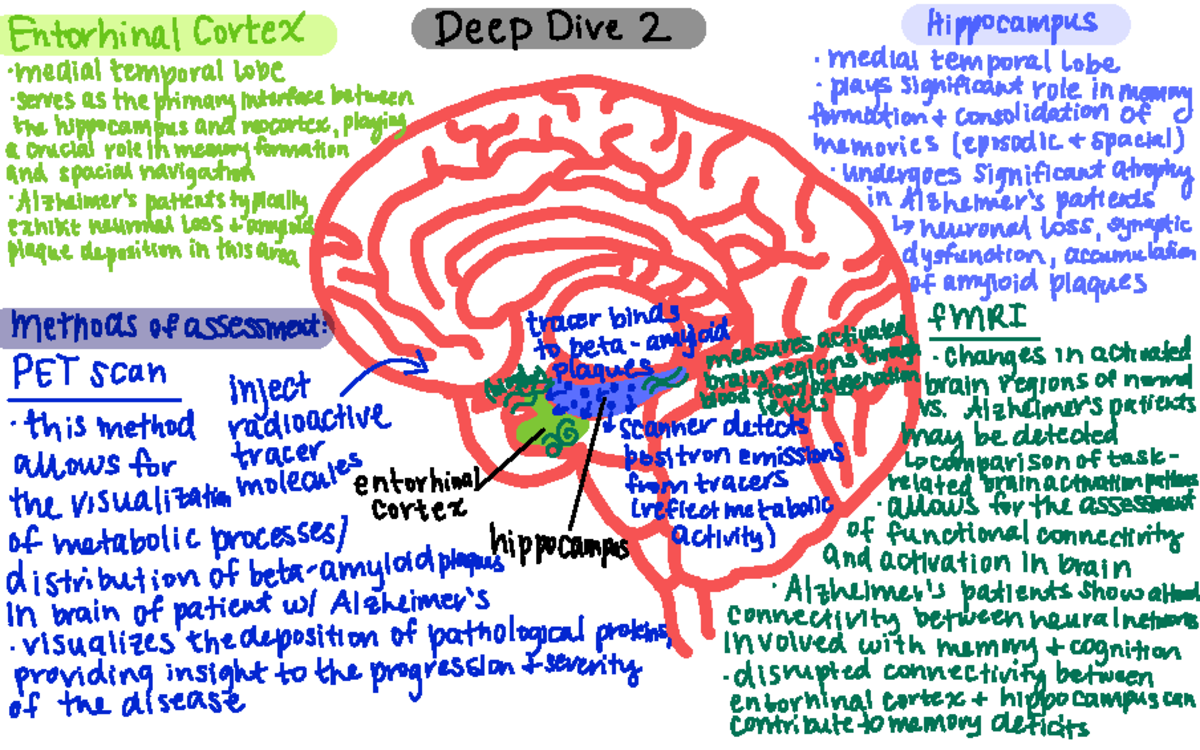 Deep Dive 2
Entorhinal Cortex
·medial temporal lobe
·serves as the primary interface between
the hippocampus and neocortex, playing
a crucial role in memory formation
and spacial navigation
·Alzheimer's patients typically
exhibit neuronal loss + amyloid
plaque deposition in this area
Hippocampus
· medial temporal lobe
· plays significant role in memory
formation + consolidation of
memories (episodic + spacial)
· undergoes significant atrophy
in Alzheimer's patients
↳ neuronal loss, synaptic
dysfunction, accumulation
of amyloid plaques
methods of assessment:
PET scan
· this method
allows for
the visualization
of metabolic processes/
distribution of beta-amyloid plaques
in brain of patient w/ Alzheimer's
· visualizes the deposition of pathological proteins,
providing insight to the progression + severity
of the disease
inject
radioactive
tracer
molecules
tracer binds
to beta-amyloid
plaques
scanner detects
positron emissions
from tracers
(reflect metabolic
activity)
entorhinal
cortex
hippocampus
measures activated
brain regions through
blood flow/oxygenation
levels
fMRI
· changes in activated
brain regions of normal
vs. Alzheimer's patients
may be detected
↳ comparison of task-
related brain activation patterns
· allows for the assessment
of functional connectivity
and activation in brain
· Alzheimer's patients show altered
connectivity between neural networks
involved with memory + cognition
· disrupted connectivity between
entorhinal cortex + hippocampus can
contribute to memory deficits